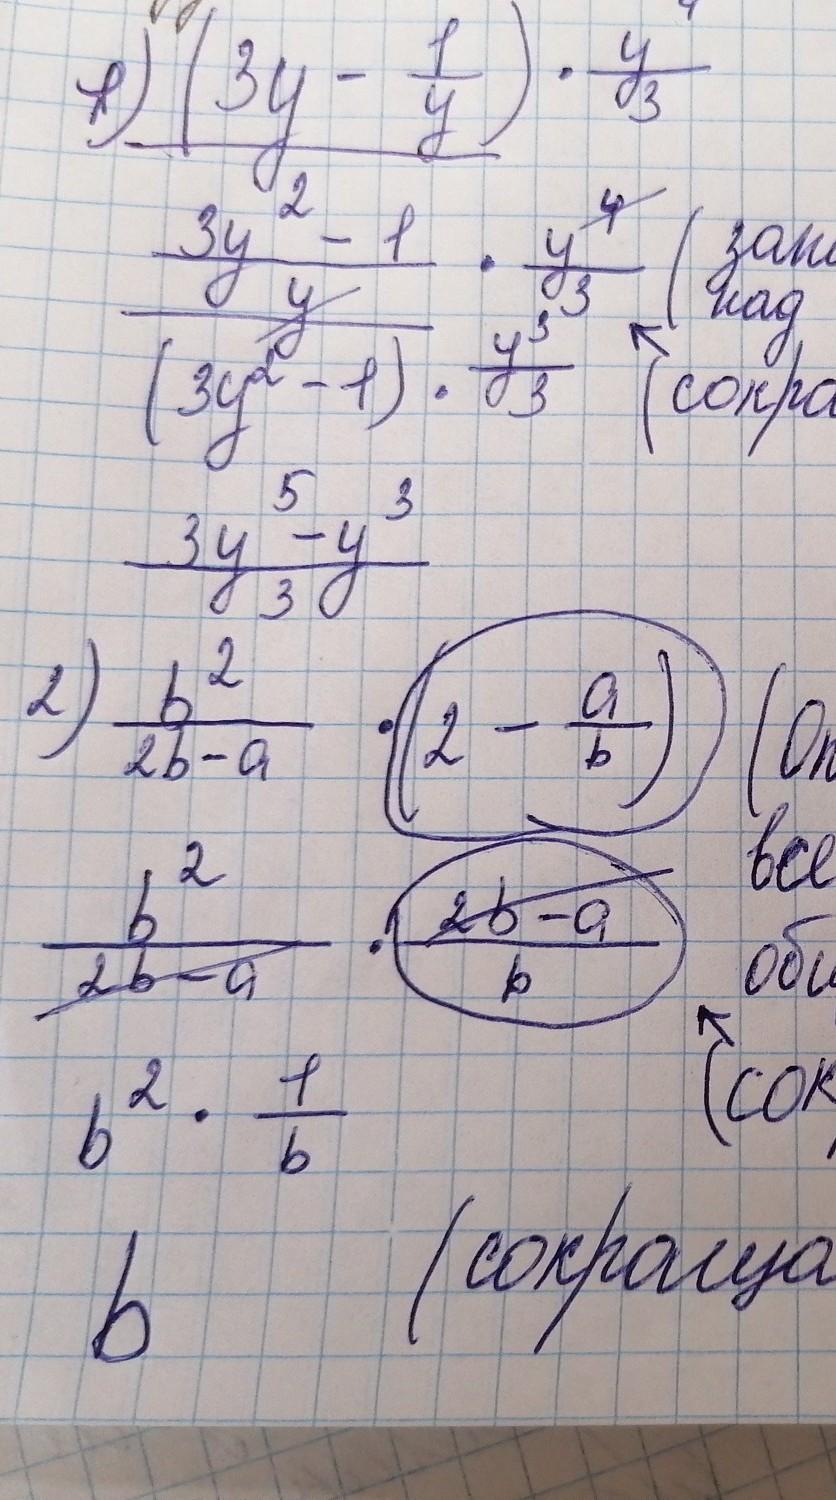 1) (3y - 1/y) · y⁴/3
(3y² - 1)/y · y⁴/3 (
над
(3y² - 1) · y³/3 (сокра
(3y⁵ - y³)/3
2) b²/(2b-a) · (2 - a/b) (Оп
все
b²/(2b-a) · (2b-a)/b
b² · 1/b (сок
b (сокраща